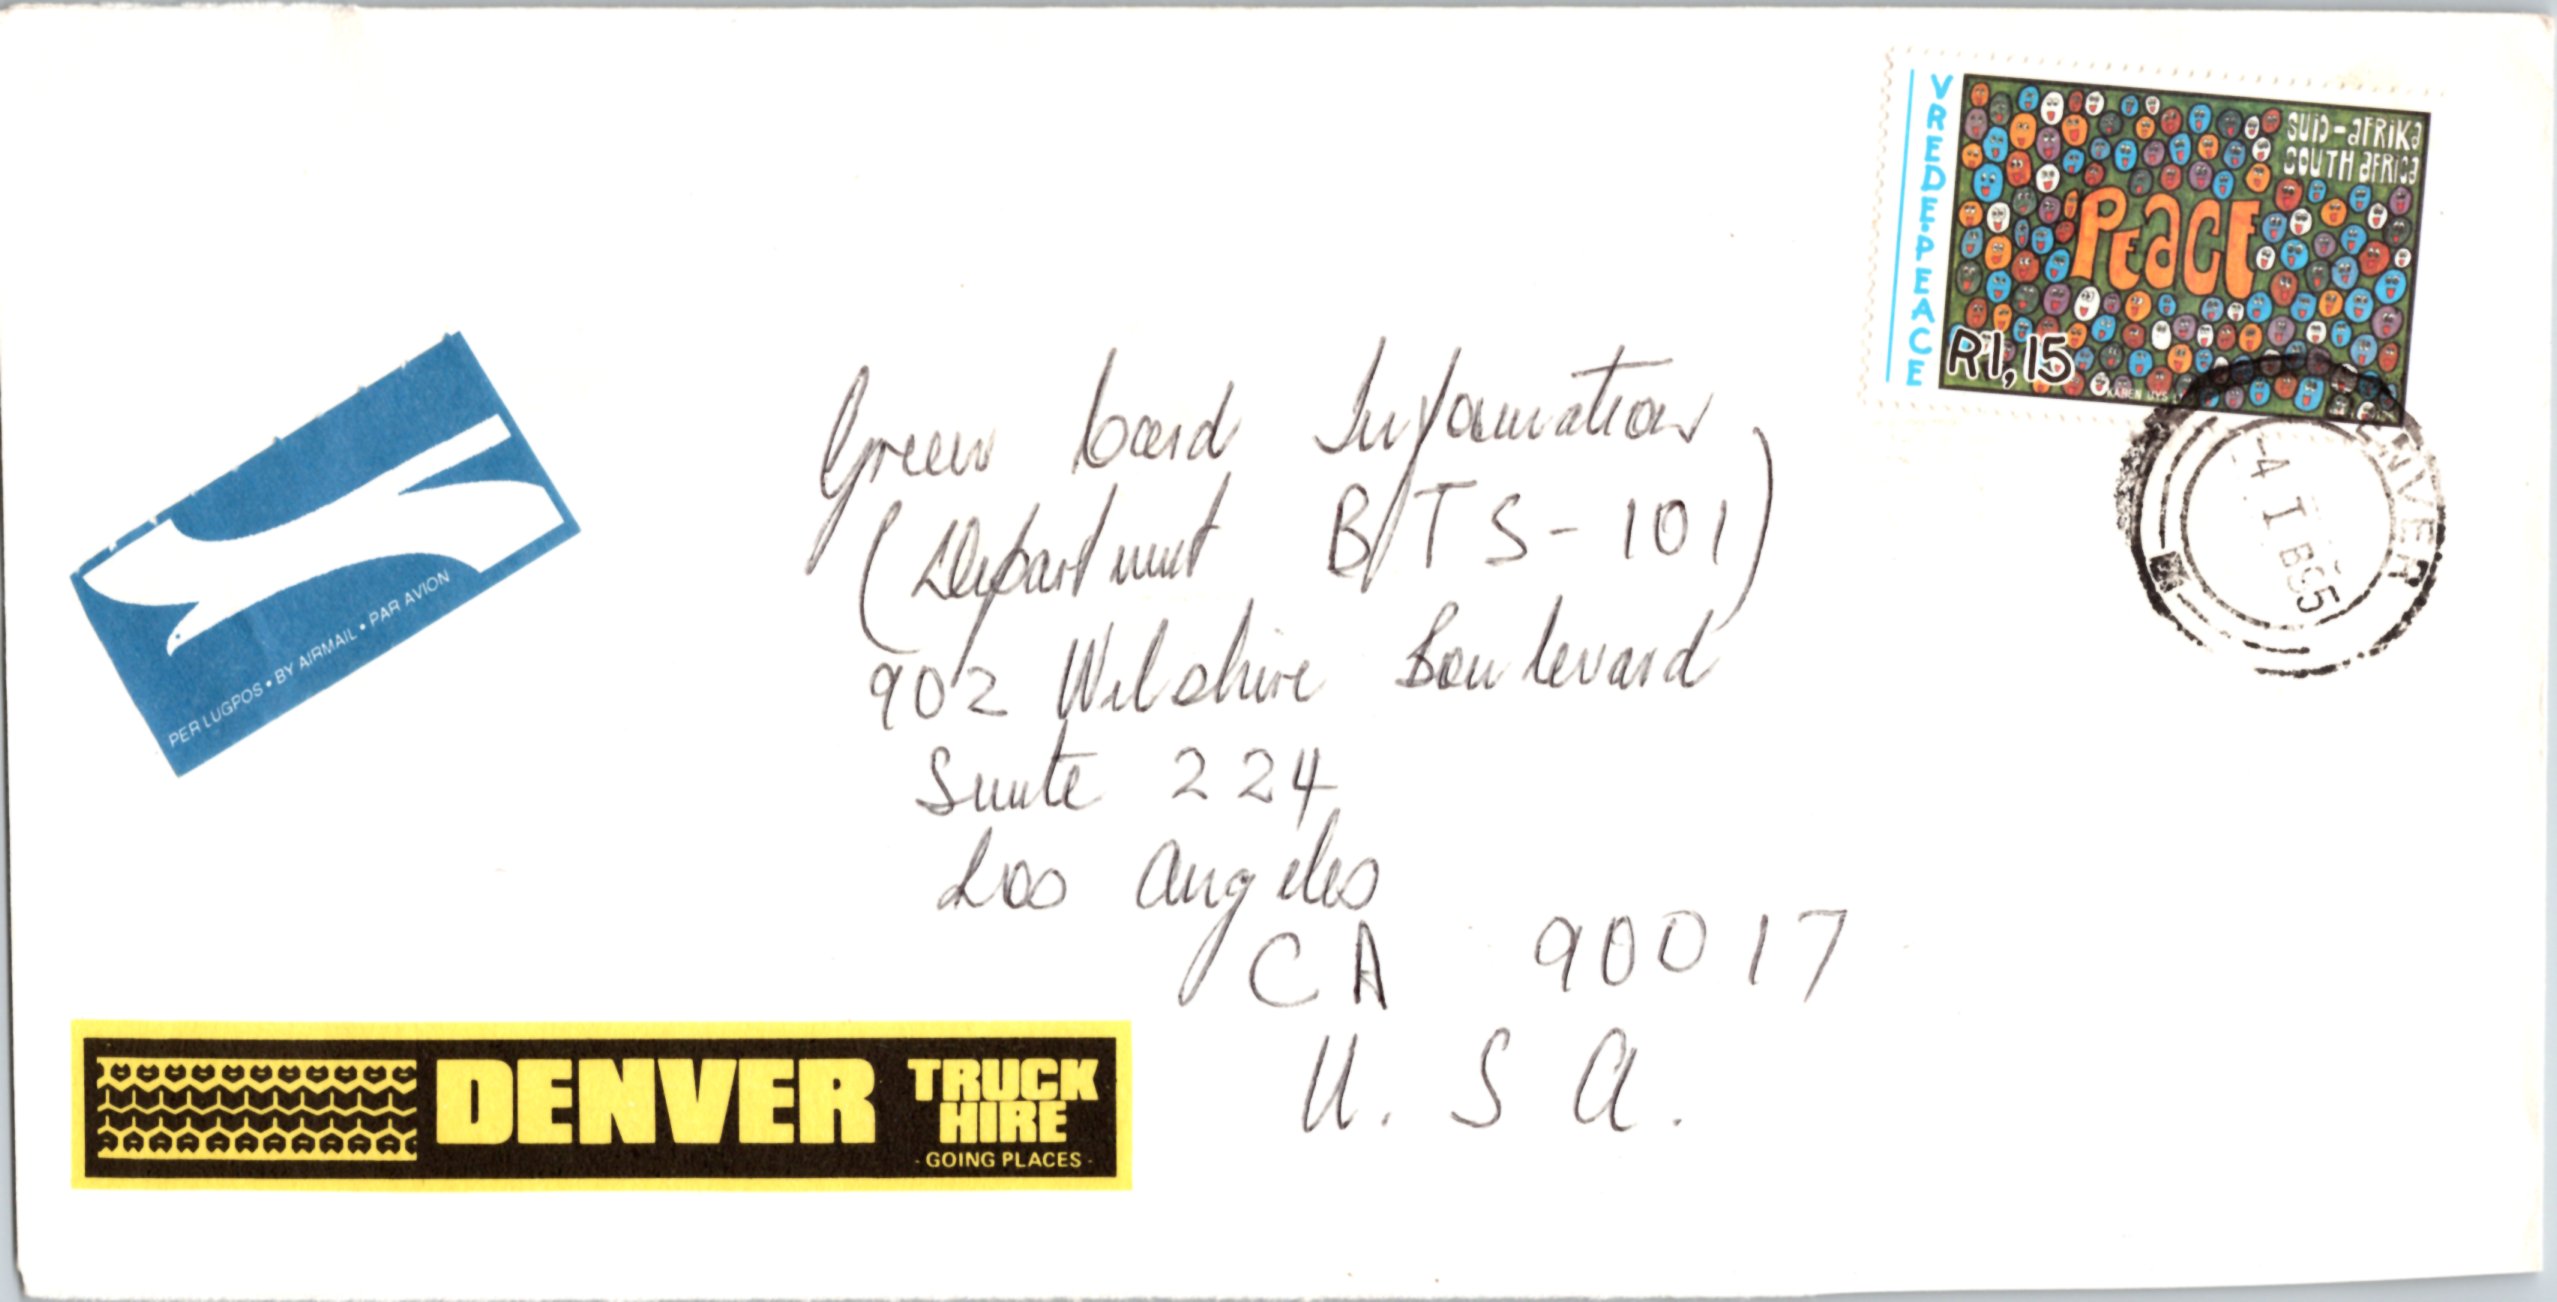 VREDE·PEACE
SUID-AFRIKA
SOUTH AFRICA
PEACE
R1,15
DENVER
-4 I
Green Card Information
(Department B/TS-101)
902 Wilshire Boulevard
Suite 224
Los Angeles
CA 90017
U.S.A.
PER LUGPOS • BY AIRMAIL • PAR AVION
DENVER TRUCK HIRE
- GOING PLACES -